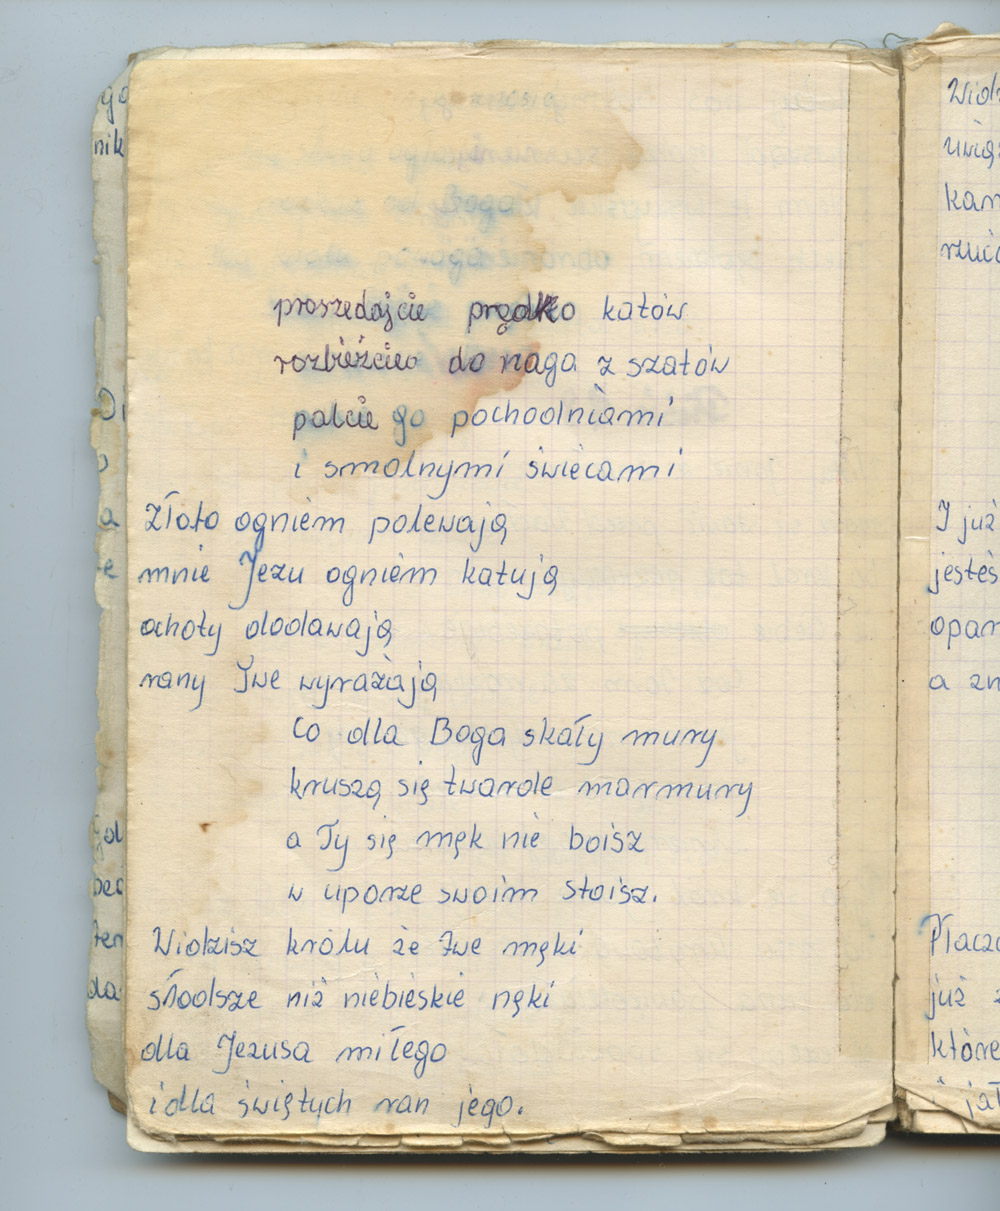 proszedajcie prędko katów
rozbieżcieo do naga z szatów
palcie go pochodniami
i smolnymi świecami
Złoto ogniem polewają
mnie Jezu ogniem katują
ochoty dodawają
rany Twe wyrażają
Co dla Boga skały mury
kruszą się twarde marmury
a Ty się męk nie boisz
w uporze swoim stoisz.
Widzisz królu że Twe męki
słodsze niż niebieskie ręki
dla Jezusa miłego
i dla świętych ran jego.
I już
jesteś
a zn
już
które